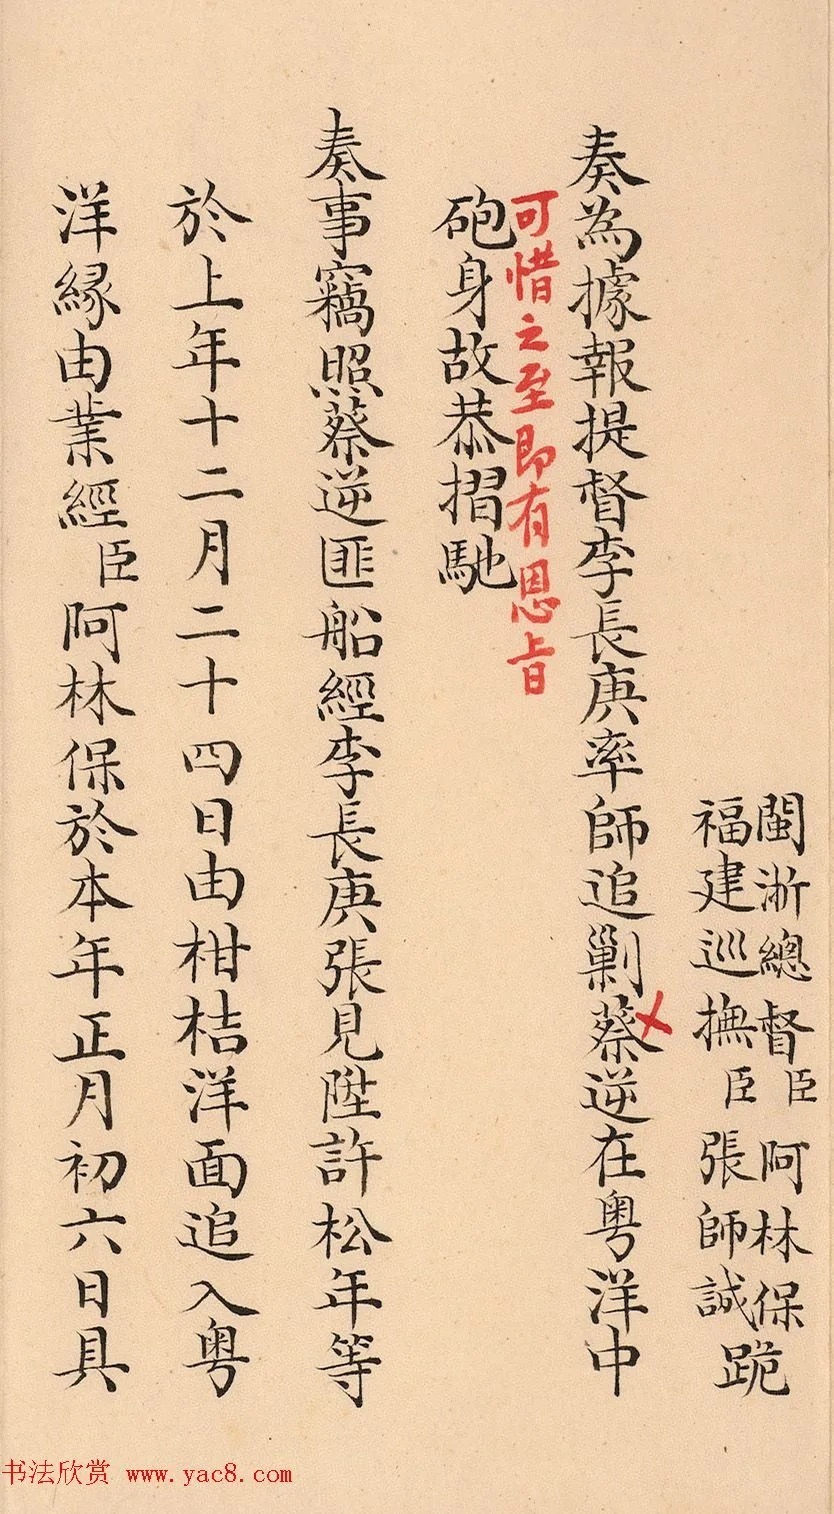 閩浙總督臣阿林保
福建巡撫臣張師誠跪
奏為據報提督李長庚率師追剿蔡逆在粤洋中
可惜之至即有恩旨
砲身故恭摺馳
奏事竊照蔡逆匪船經李長庚張見陞許松年等
於上年十二月二十四日由柑桔洋面追入粤
洋緣由業經臣阿林保於本年正月初六日具
书法欣赏 www.yac8.com